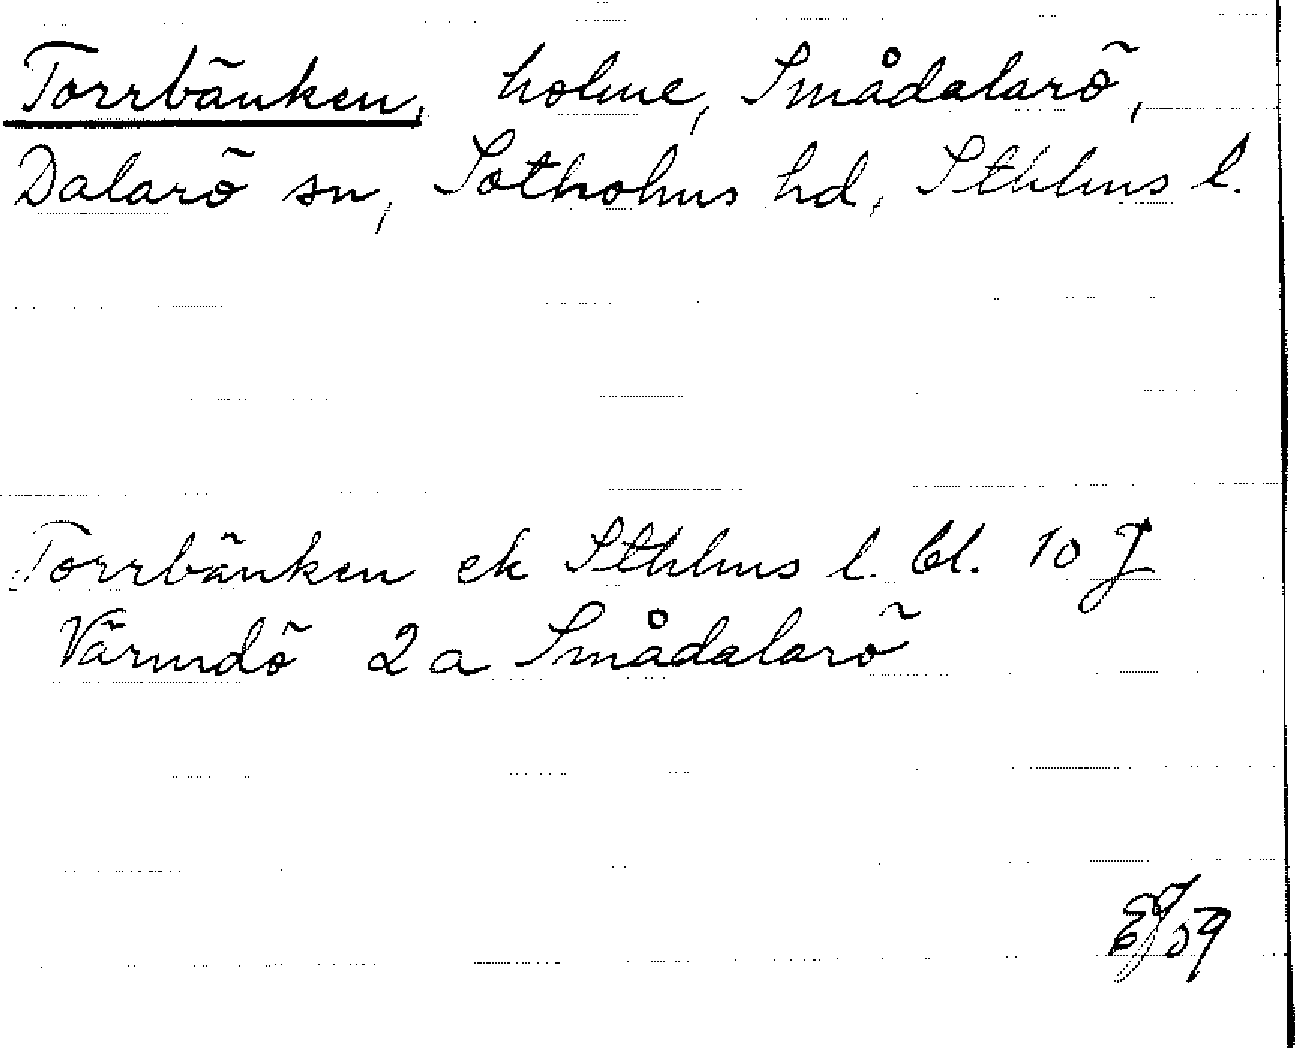 Torrbänken, holme, Smådalarö,
Dalarö sn, Sotholms hd, Sthlms l.
Torrbänken ek Sthlms l. bl. 10 J
Värmdö 2a Smådalarö
EJ 59